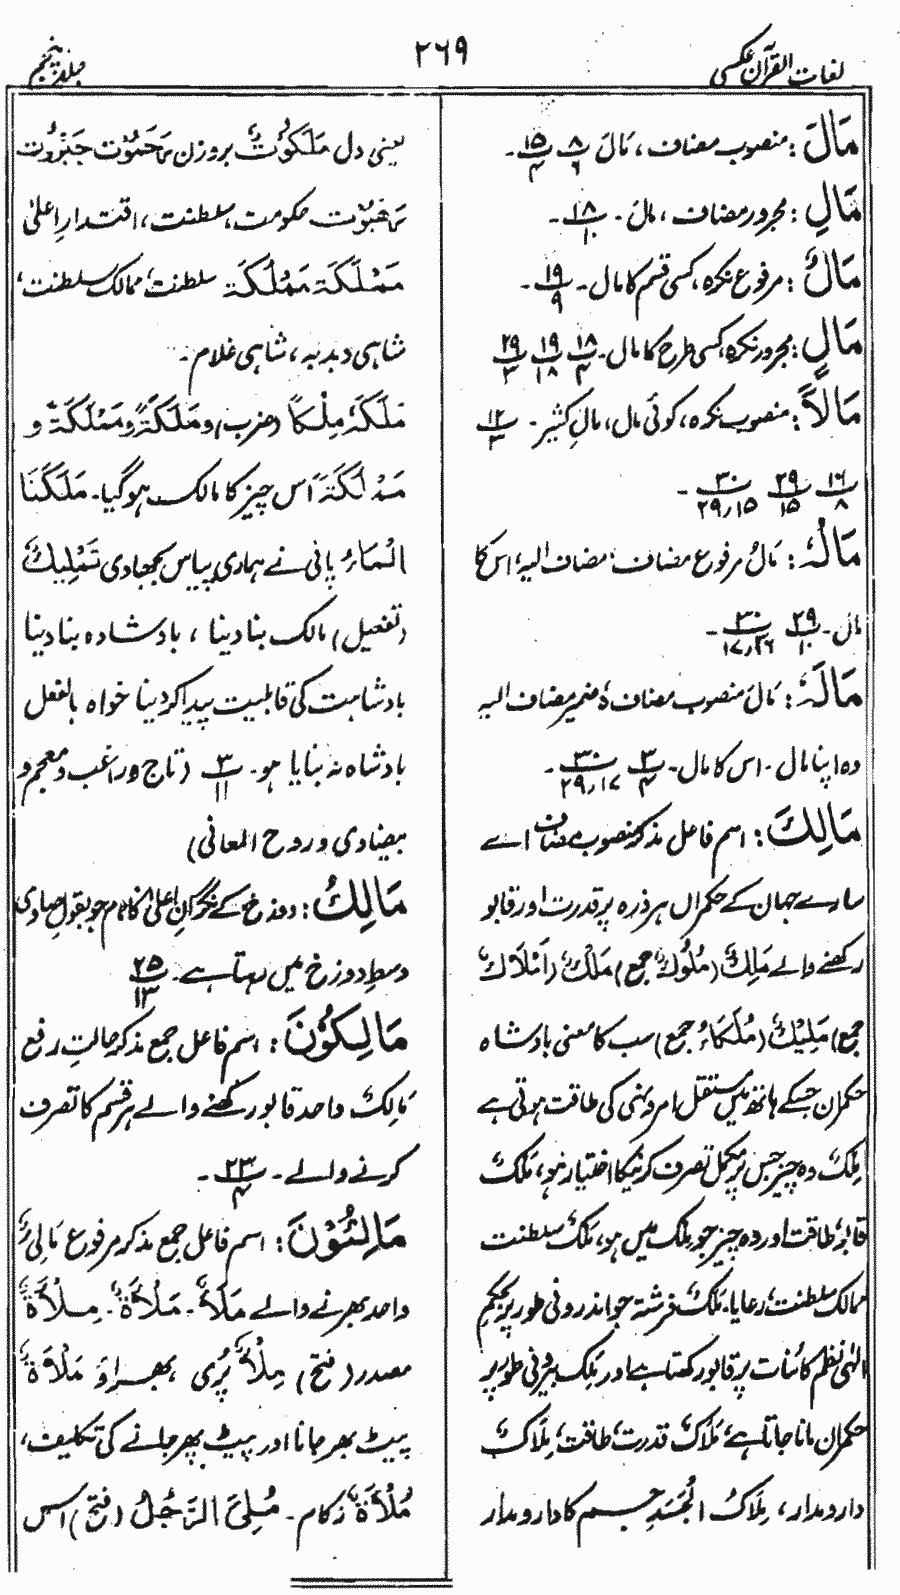 لغات القرآن عکسی
۲۶۹
جلد پنجم
مَالَ: منصوب مضاف، مَالَ ۸/۶ ۱۵/۴۔
مَالِ: مجرور مضاف، مالِ۔ ۱۸/۱۰۔
مَالٌ: مرفوع نکرہ، کسی قسم کا مال۔ ۱۹/۹۔
مَالٍ: مجرور نکرہ، کسی طرح کا مال۔ ۱۸/۴ ۱۹/۱۸ ۲۹/۳
مَالاً: منصوب نکرہ، کوئی مال، مالِ کثیر۔ ۱۲/۳
۱۶/۸ ۲۹/۱۵ ۳۰/۲۹،۱۵۔
مَالُہٗ: مَالُ مرفوع مضاف، مضاف الیہ، اس کا
مال۔ ۲۹/۱۰ ۳۰/۱۷،۲۶۔
مَالَہٗ: مَالَ منصوب مضاف ہٗ ضمیر مضاف الیہ
وہ اپنا مال۔ اس کا مال۔ ۳/۴ ۳۰/۲۹،۱۷۔
مَالِکَ: اسم فاعل مذکر منصوب مضاف اے
سارے جہان کے حکمراں ہر ذرہ پر قدرت اور قابو
رکھنے والے مَلِکٌ (مُلُوکٌ جمع) مَلْکٌ (اَمْلَاکٌ
جمع) مَلِیْکٌ (مُلَکَاءُ جمع) سب کا معنی بادشاہ
حکمران جسکے ہاتھ میں مستقل امر و نہی کی طاقت ہوتی ہے
مِلکٌ وہ چیز جس پر مکمل تصرف کرنیکا اختیار ہو، مَلکٌ
قابو، طاقت اور وہ چیز جو مِلک میں ہو، مُلکٌ سلطنت
ممالک سلطنت، رعایا۔ مَلَکٌ فرشتہ جو اندرونی طور پر بحکمِ
الٰہی نظم کائنات پر قابو رکھتا ہے اور مَلِک بیرونی طور پر
حکمران مانا جاتا ہے، مَلَاکٌ قدرت، طاقت، مِلَاکٌ
دارومدار، مِلَاکُ الْجَسَدِ جسم کا دارومدار
یعنی دل مَلَکُوْتٌ بروزن رَحَمُوْت جَبَرُوت
رَہَبُوْت حکومت، سلطنت، اقتدارِ اعلیٰ
مَمْلَکَۃ مَمْلُکَۃ سلطنت، ممالک سلطنت،
شاہی دبدبہ، شاہی غلام۔
مَلَکَہٗ مِلْکاً (ضرب) و مَلَکَۃً و مَمْلَکَۃً و
مَمْلُکَۃً اس چیز کا مالک ہو گیا۔ مَلَکَنَا
الْمَاءُ پانی نے ہماری پیاس بجھادی تَمْلِیْکٌ
(تفعیل) مالک بنا دینا، بادشاہ بنا دینا
بادشاہت کی قابلیت پیدا کر دینا خواہ بالفعل
بادشاہ نہ بنایا ہو۔ ۳/۱۱ (تاج و راغب و معجم و
بیضاوی و روح المعانی)
مَالِکُ: دوزخ کے نگرانِ اعلیٰ کا نام جو بقول صاوی
وسطِ دوزخ میں رہتا ہے۔ ۲۵/۱۳
مَالِکُوْنَ: اسم فاعل جمع مذکر حالتِ رفع
مَالِکٌ واحد قابو رکھنے والے ہر قسم کا تصرف
کرنے والے۔ ۲۳/۴۔
مَالِئُوْنَ: اسم فاعل جمع مذکر مرفوع مَالِئٌ
واحد بھرنے والے مَلَأٌ۔ مَلْأَۃٌ۔ مِلْأَۃٌ
مصدر (فتح) مِلْأٌ پُری، بھراؤ مَلْأَۃٌ
پیٹ بھر جانا اور پیٹ بھر جانے کی تکلیف،
مُلْأَۃٌ زکام۔ مُلِیَٔ الرَّجُلُ (فتح) اس